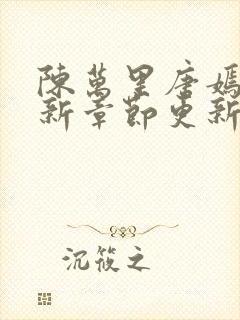 陳萬里唐嫣
新章節更新
沉筱之